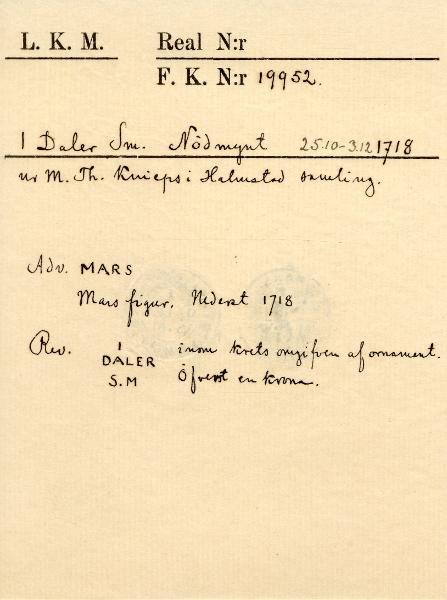 L. K. M. Real N:r
F. K. N:r 19952.
1 Daler Sm. Nödmynt 25.10-3.12 1718
ur M. Th. Knieps i Halmstad samling.
Adv. MARS
Mars figur. Nederst 1718
Rev. 1 DALER S.M inom krets omgifven af ornament.
Öfverst en krona.